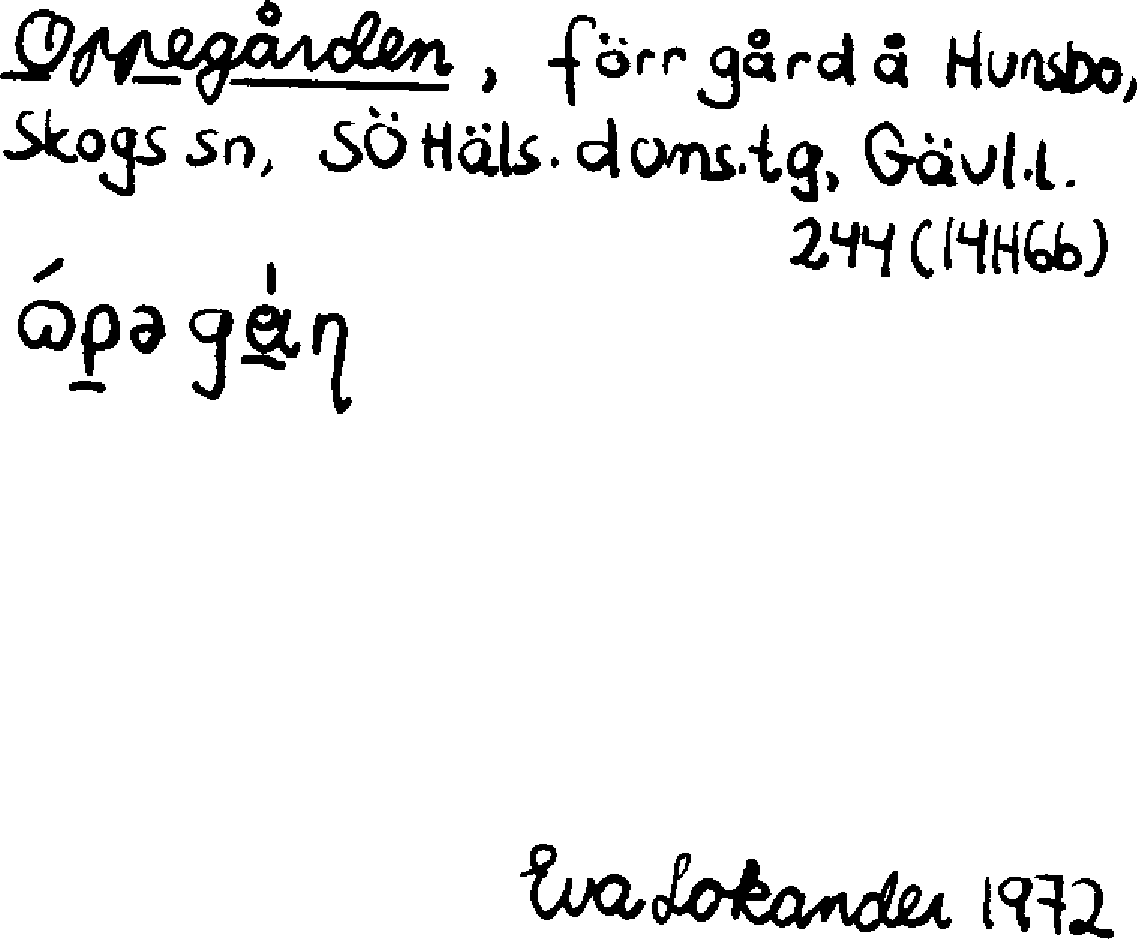 Oppegården, förr gård å Hunsbo,
Skogs sn, SÖ Häls. doms.tg, Gävl.l.
244 (14H6b)
Eva Lokander 1972